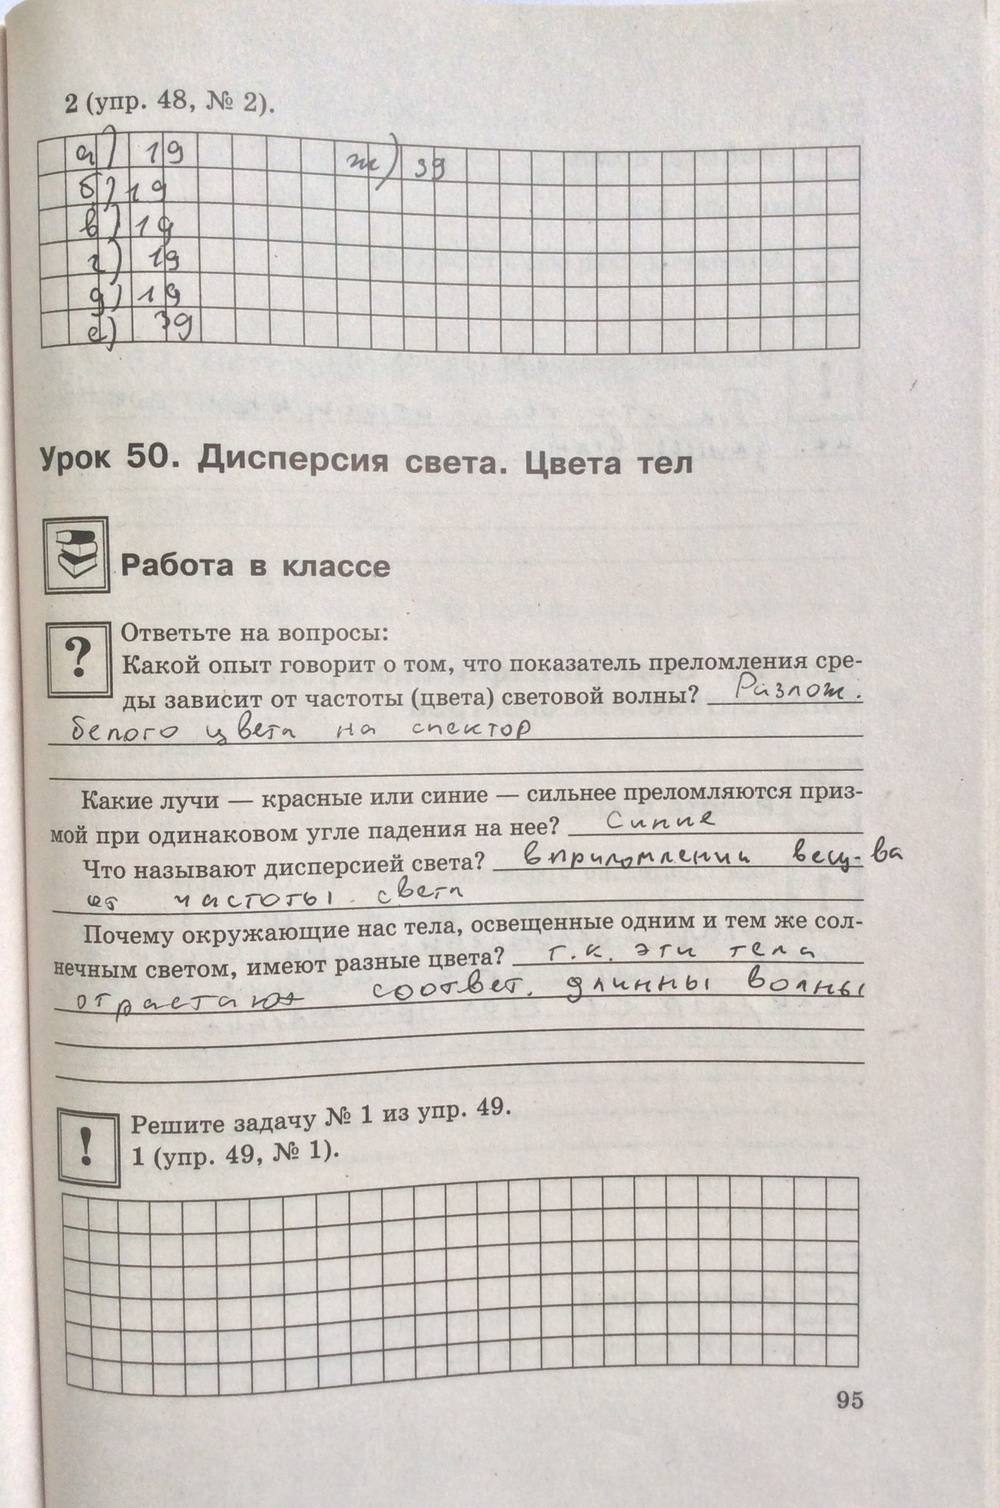 2 (упр. 48, № 2).
а) 19 ж) 39
б) 19
в) 19
г) 19
д) 19
е) 39
Урок 50. Дисперсия света. Цвета тел
Работа в классе
? Ответьте на вопросы:
Какой опыт говорит о том, что показатель преломления сре-
ды зависит от частоты (цвета) световой волны? Разлож.
белого цвета на спектор
Какие лучи — красные или синие — сильнее преломляются приз-
мой при одинаковом угле падения на нее? Синие
Что называют дисперсией света? вприломлении вещ-ва
от частоты света
Почему окружающие нас тела, освещенные одним и тем же сол-
нечным светом, имеют разные цвета? т.к. эти тела
отрастают соответ. длинны волны
! Решите задачу № 1 из упр. 49.
1 (упр. 49, № 1).
95